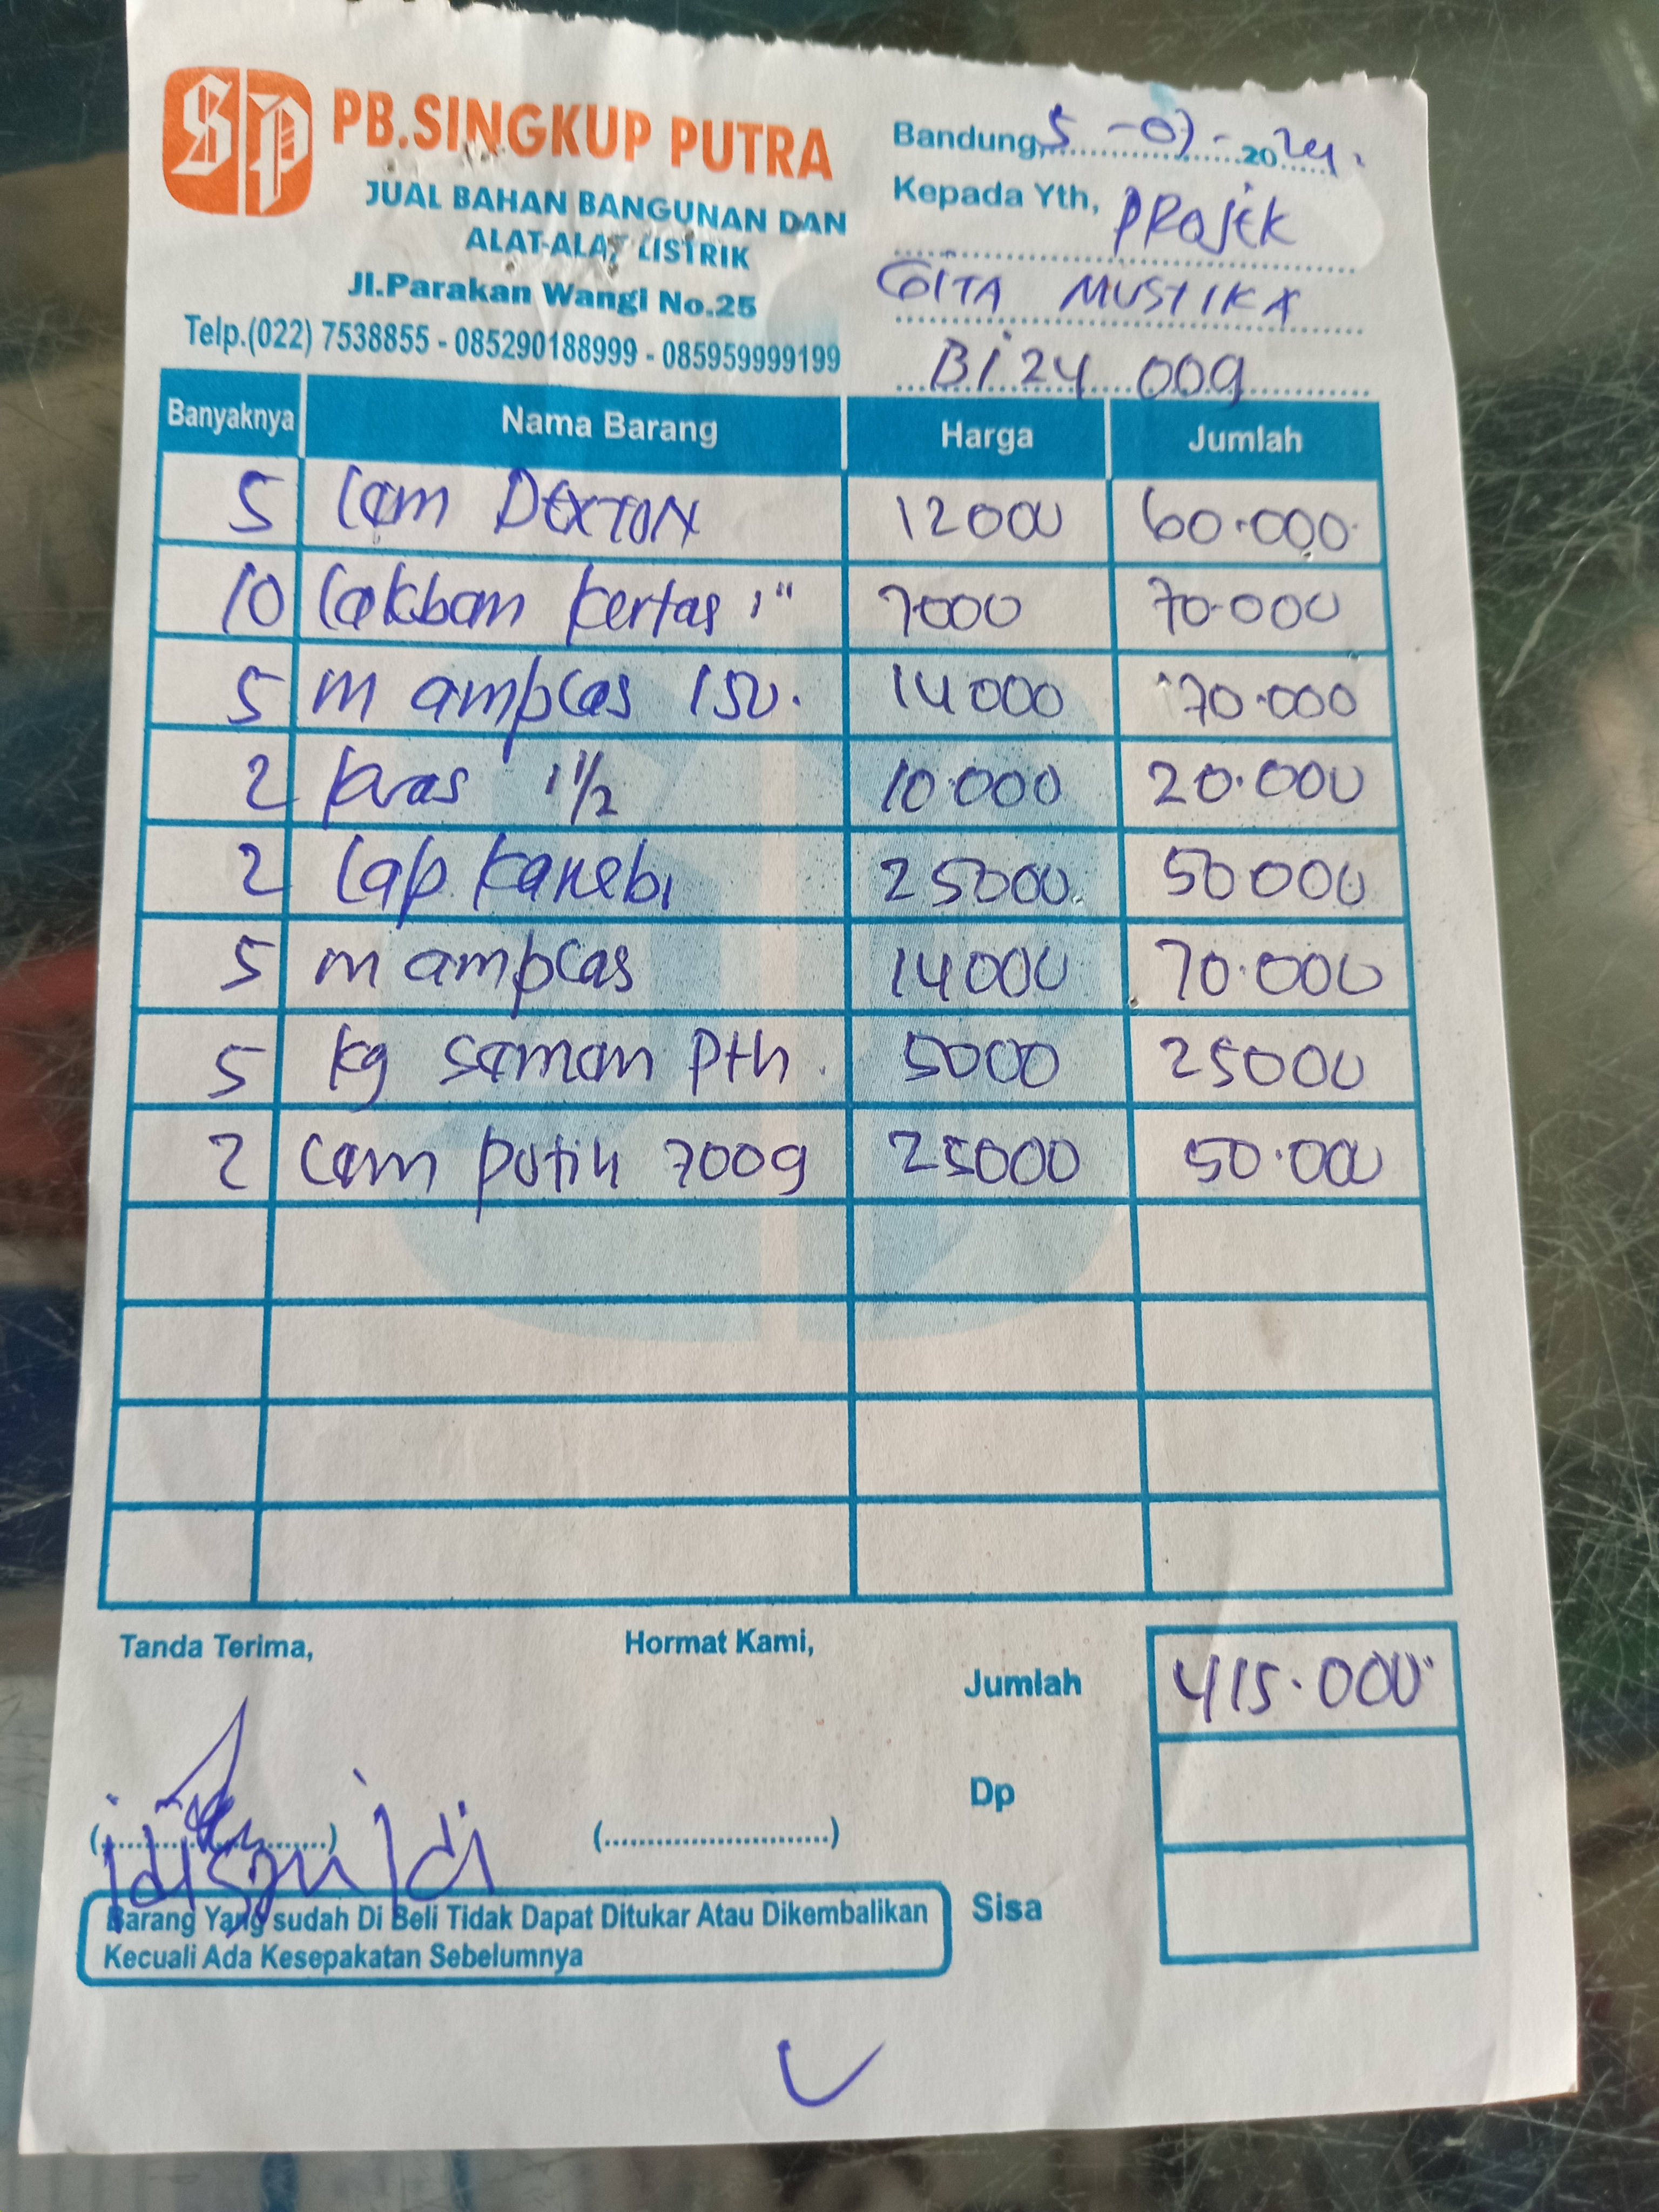 SP PB.SINGKUP PUTRA
JUAL BAHAN BANGUNAN DAN
ALAT-ALAT LISTRIK
Jl.Parakan Wangi No.25
Telp.(022) 7538855 - 085290188999 - 085959999199
Bandung, 5 - 07 - 2024.
Kepada Yth, PROJEK
GITA MUSTIKA
BI 24 009
Banyaknya Nama Barang Harga Jumlah
5 Lem DEXTON 12000 60.000
10 Lakban kertas 1" 7000 70.000
5 m amplas 150. 14000 70.000
2 kuas 1 1/2 10.000 20.000
2 Lap kanebi 25000 50000
5 m amplas 14000 70.000
5 kg saman Pth. 5000 25000
2 Lem putih 700g 25000 50.000
Tanda Terima, Hormat Kami,
Jumlah 415.000
Dp
Sisa
Barang Yang sudah Di Beli Tidak Dapat Ditukar Atau Dikembalikan
Kecuali Ada Kesepakatan Sebelumnya